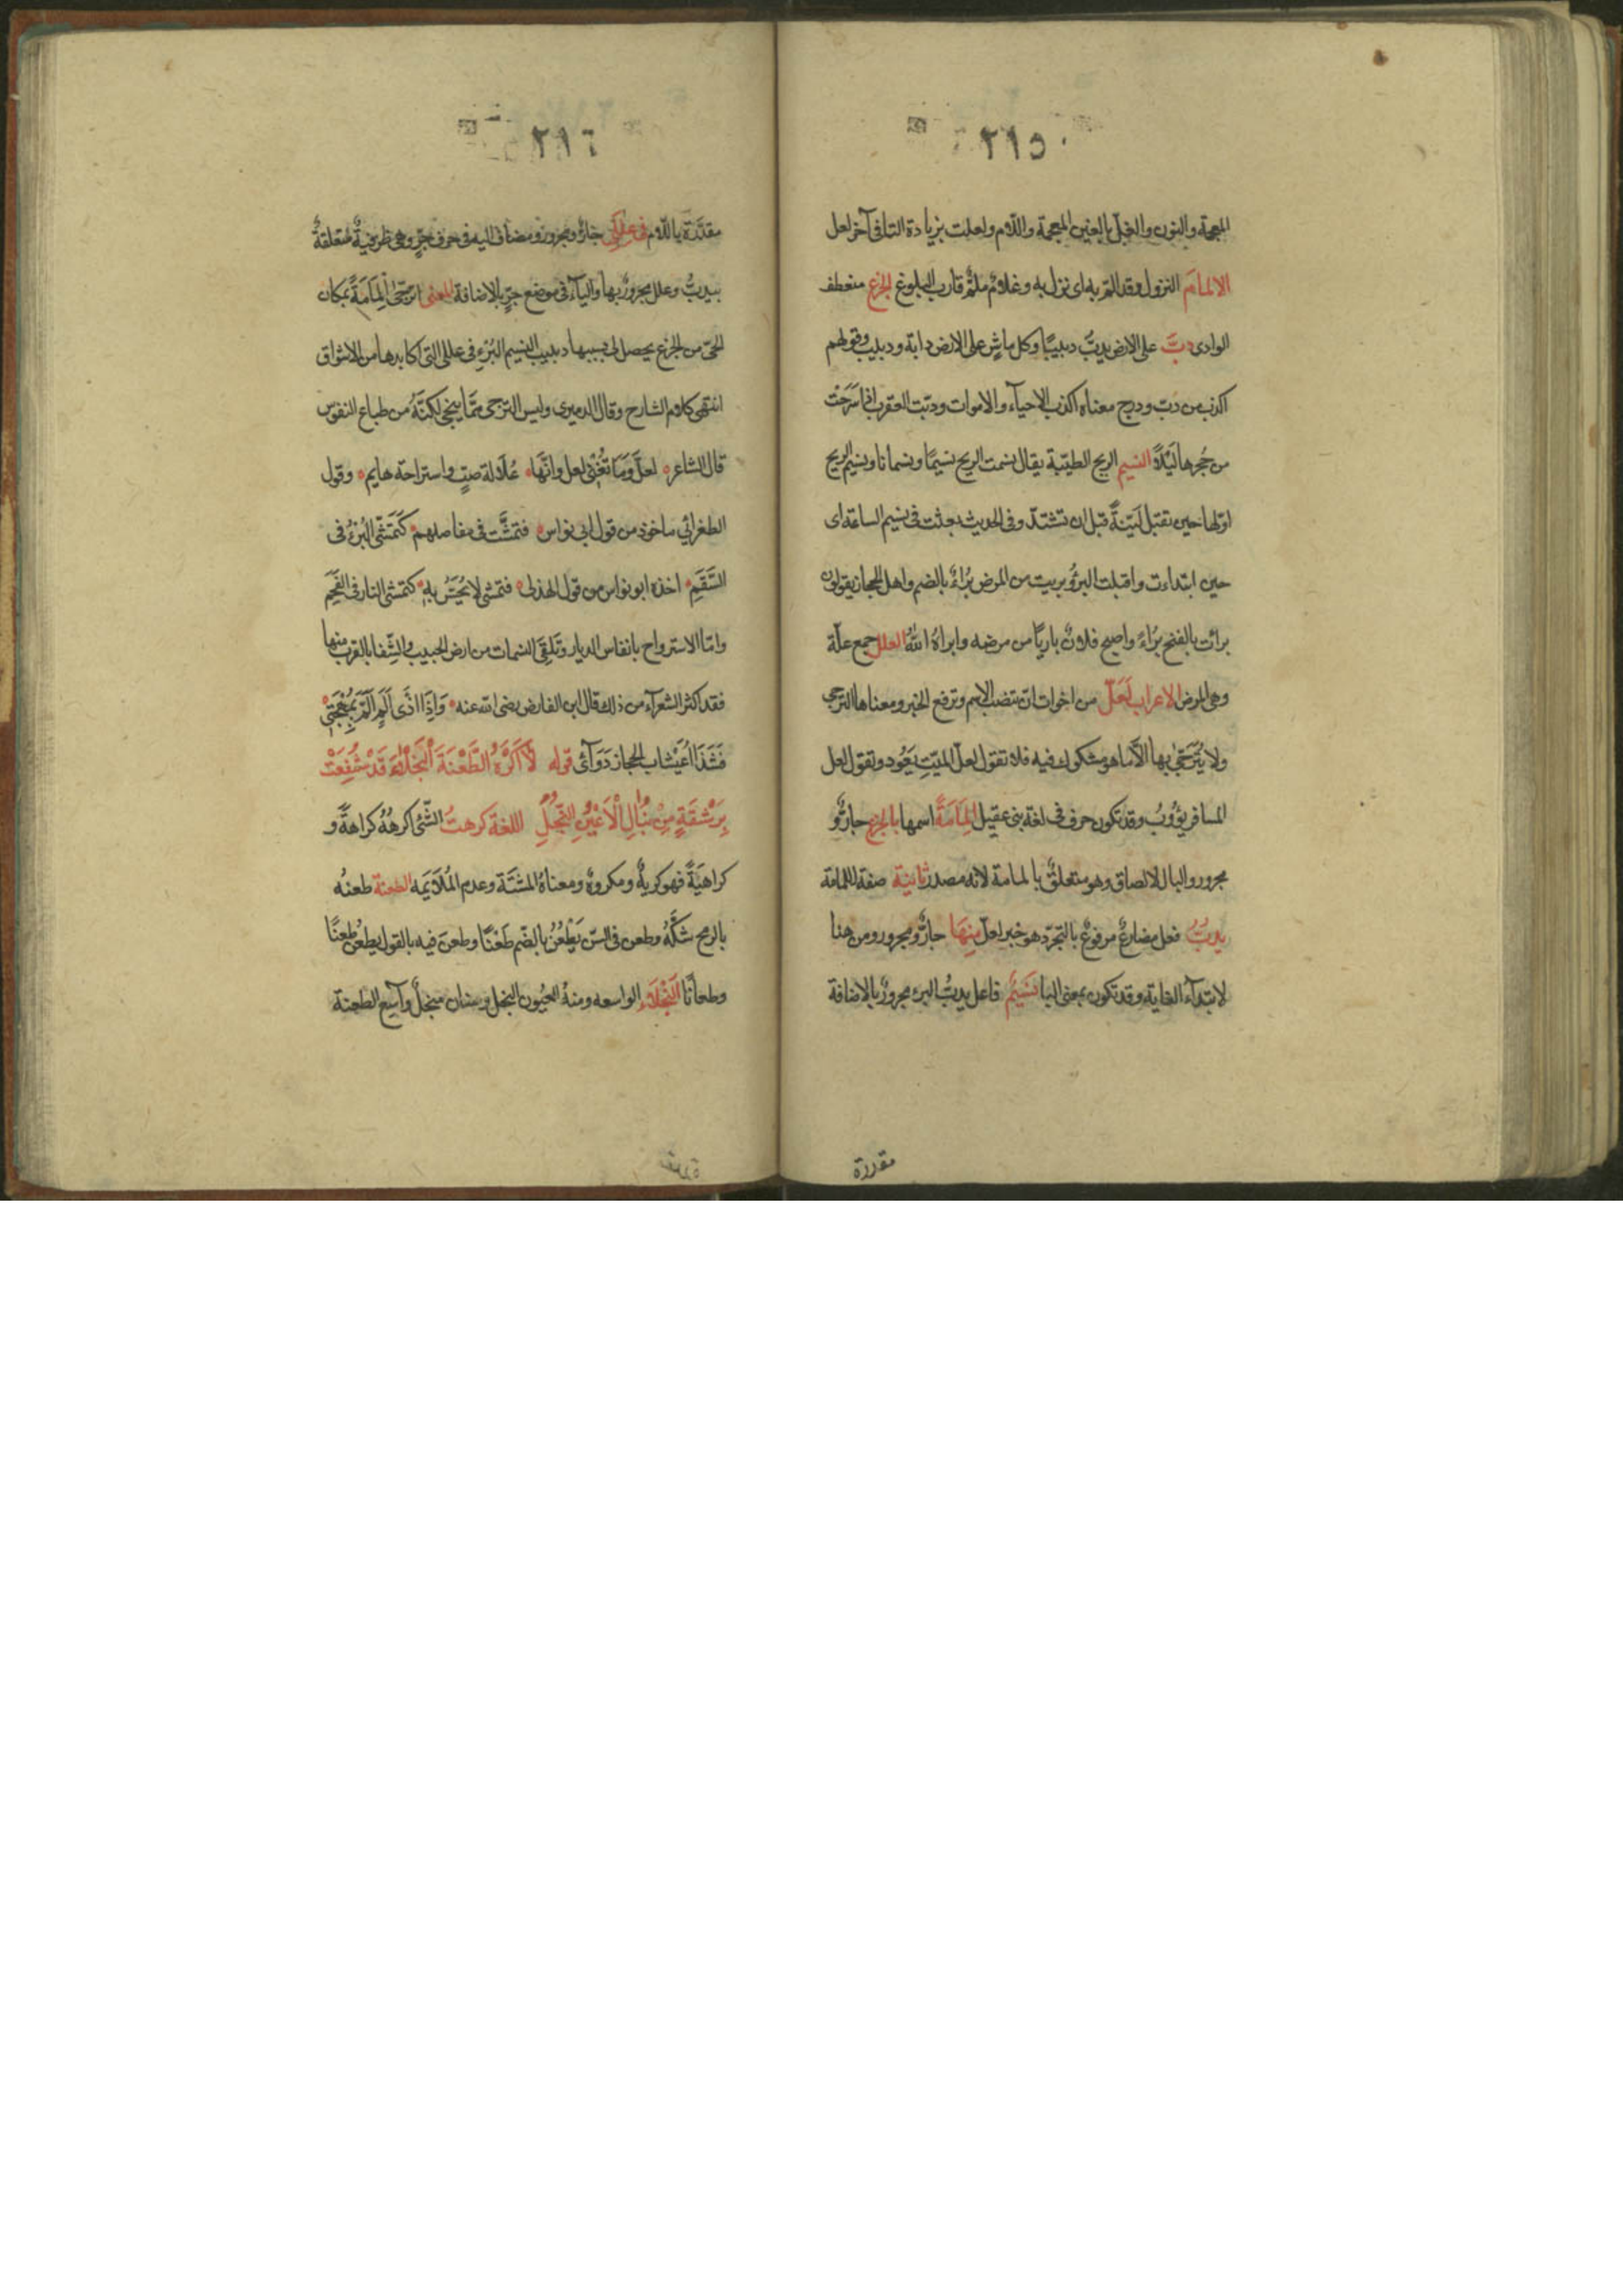 ٢١٥
المعجمة والنون والغبل بالغين المعجمة واللام ولعلت بزيادة التا فى آخر لعل
الالمام النزول وقد المّ به اى نزل به وغلامٌ ملمٌّ قارب البلوغ الجزع منعطف
الوادى دبّ على الارض يدبّ دبيبًا وكل ماشٍ على الارض دابة ودبيب وقولهم
اكذب من دبّ ودرج معناه اكذب الاحياء والاموات ودبّت العقرب اذا سرحت
من جُحرها لَيْلًا النسيم الريح الطيّبة يقال نسمت الريح نسيمًا ونسمانا ونسيم الريح
اوّلها حين تقبل لَيّنةً قبل ان تشتدّ وفى الحديث بعثت فى نسيم الساعة اى
حين ابتداءت واقبلت البرؤ بريت من المرض بُراءً بالضم واهل الحجاز يقولون
برائت بالفتح بَراءً واصبح فلانٌ باريًا من مرضه وابراهُ اللهُ العلل جمع علّة
وهى المرض الاعراب لَعَلّ من اخوات انّ تنصب الاسم وترفع الخبر ومعناها الترجى
ولا يُتَرَجّى بها الّا ما هو مشكوك فيه فلا تقول لعلّ الميّت يَعُود وتقول لعل
المسافر يؤُوبُ وقد تكون حرف فى لغة بنى عقيل المامَةً اسمها بالجزع جارٌّ و
مجرور والبا للالصاق وهو متعلقٌ بالمامة لانه مصدر ثانية صفة للمامة
يدبُّ فعل مضارعٌ مرفوعٌ بالتجرّد هو خبر لعلّ مِنهَا جارٌّ ومجرور ومن هنا
لابتدآء الغاية وقد تكون بمعنى البا نَسَيمُ فاعل يدبُّ البرء مجرورٌ بالاضافة
مقدرة
٢١٦
مقدَّرَة باللام فى عللى جارٌّ ومجرورٌ ومضاف اليه فى حرف جرٍّ وهى ظرفيةٌ متعلقةٌ
بيدبُّ وعلل مجرورٌ بها واليآء فى موضع جرٍّ بالاضافة المعنى اترجّى المَامَةً بمكان
الحىّ من الجزع يحصل لى بسببها دبيب النسيم البُرْءِ فى عللى التى اكابدها من الاشواق
انتهى كلام الشارح وقال الدميرى وليس الترجى ممّا ينجى لكنّهُ من طباع النفوس
قال الشاعر لعلَّ وَمَا تُغْنى لعل وانَّها عُلَالة صبٍّ واستراحة هايم وقول
الطغرائى ماخوذ من قول ابى نواس فتمشَّت فى مفاصلهم كَتَمَشّى البُرْءُ فى
السَّقَمِ اخذه ابو نواس من قول الهذلى فتمشى لا يُحَسُّ بهِ كتمشى النار فى الفَحَمِ
وامّا الاسترواح بانفاس الديار وتَلَقّى النسمات من ارض الحبيب والشِّفا بالقرب منها
فقد اكثر الشعرآء من ذلك قال ابن الفارض رضى الله عنه وَاِذَا اذَى اَلَمٍ اَلَمَّ بِمُهْجَتِى
فَشَذَا اُعَيْشاب الحجاز دَوَآئى قوله لَا اَكْرَهُ الطَّعْنَةَ النَّجْلَآءَ قَدْ شُفِعَتْ
بِرَشْقَةٍ مِنْ نِبَالِ الْاَعْيُنِ النُّجُلِ اللغة كرهتُ الشَّئ اكرهُهُ كراهةً و
كراهيَةً فهو كريهٌ ومكروهٌ ومعناهُ المشقّة وعدم المُلَايَمه الطعنة طعنهُ
بالرمح شكَّهُ وطعن فى السّن يَطْعُنُ بالضّم طَعْنًا وطعنَ فيه بالقول يطعُن طعنًا
وطعانًا النَّجْلَاء الواسعه ومنهُ العُيُون النجل وسنان منجلٌ وآسِع الطعنة